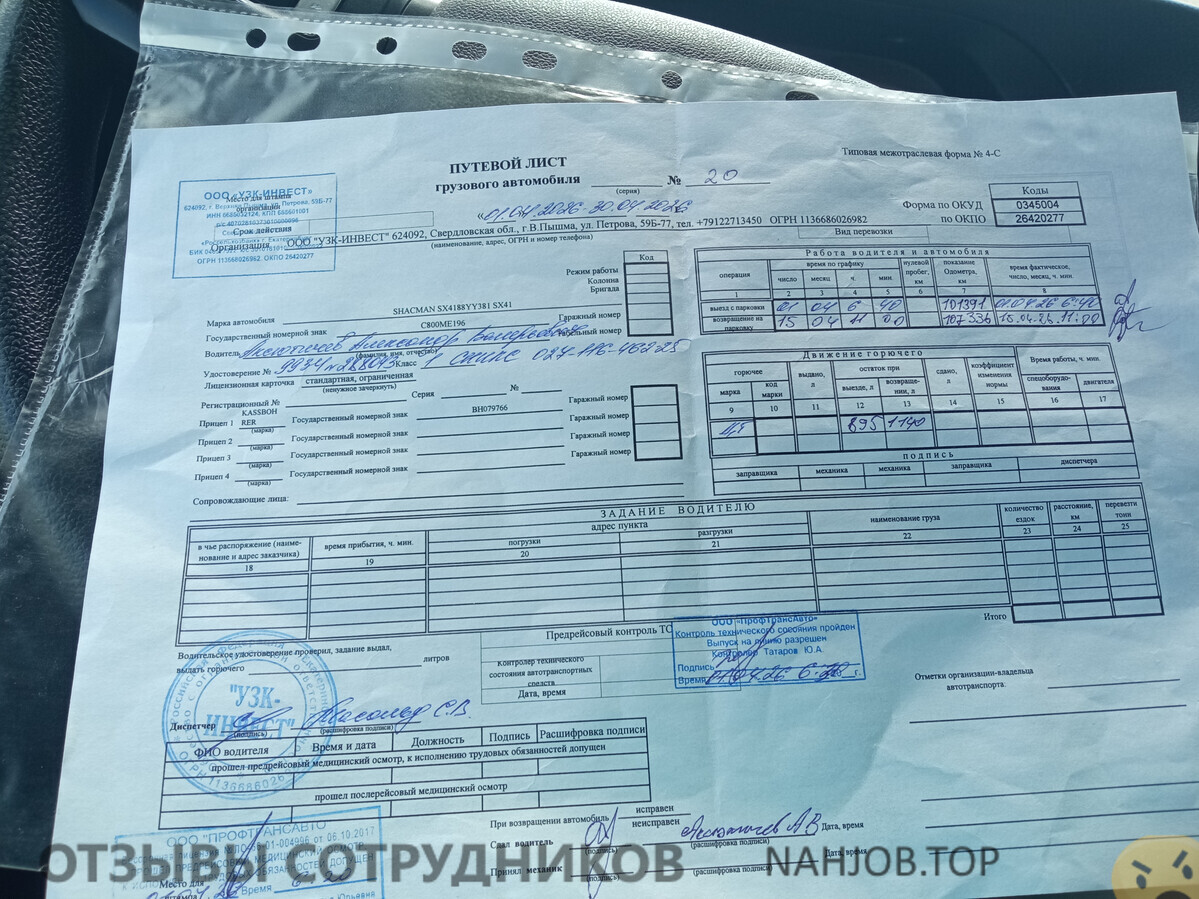 ПУТЕВОЙ ЛИСТ
грузового автомобиля № 20
(серия)
Типовая межотраслевая форма № 4-С
«01.04.2026-30.04.2026
Коды
Форма по ОКУД 0345004
по ОКПО 26420277
ООО «УЗК-ИНВЕСТ»
Место для штампа
организации
624092, г. Верхняя Пышма, ул. Петрова, 59Б-77
ИНН 6686032124, КПП 668601001
Срок действия
ОГРН 1136686026982, ОКПО 26420277
Организация ООО "УЗК-ИНВЕСТ" 624092, Свердловская обл., г.В.Пышма, ул. Петрова, 59Б-77, тел. +79122713450 ОГРН 1136686026982
(наименование, адрес, ОГРН и номер телефона)
Вид перевозки
Код
Режим работы
Колонна
Бригада
Марка автомобиля SHACMAN SX4188YY381 SX41
Гаражный номер
Государственный номерной знак С800МЕ196
Табельный номер
Водитель Александр
(фамилия, имя, отчество)
Удостоверение № Класс
Лицензионная карточка стандартная, ограниченная
(ненужное зачеркнуть)
Регистрационный № Серия №
Прицеп 1 KASSBOHRER Государственный номерной знак ВН079766 Гаражный номер
(марка)
Прицеп 2 Государственный номерной знак Гаражный номер
(марка)
Прицеп 3 Государственный номерной знак Гаражный номер
(марка)
Прицеп 4 Государственный номерной знак Гаражный номер
(марка)
Сопровождающие лица:
Работа водителя и автомобиля
операция время по графику нулевой пробег, км показание Одометра, км время фактическое, число, месяц, ч. мин.
число месяц ч. мин
1 2 3 4 5 6 7 8
выезд с парковки 01 04 6 40 101391 01.04.26 6:40
возвращение на парковку 15 04 11 00 107336 15.04.26. 11:00
Движение горючего
горючее выдано, л остаток при сдано, л коэффициент изменения нормы Время работы, ч. мин.
марка код марки выезде, л возвращении, л спецоборудования двигателя
9 10 11 12 13 14 15 16 17
895 1140
подпись
заправщика механика механика заправщика диспетчера
ЗАДАНИЕ ВОДИТЕЛЮ
в чье распоряжение (наименование и адрес заказчика) время прибытия, ч. мин. адрес пункта наименование груза количество ездок расстояние, км перевезти тонн
погрузки разгрузки
18 19 20 21 22 23 24 25
Итого
Водительское удостоверение проверил, задание выдал,
выдать горючего литров
Предрейсовый контроль ТС
Контролер технического состояния автотранспортных средств
Дата, время
ООО «ПрофТрансАвто»
Контроль технического состояния пройден
Выпуск на линию разрешен
Контролер Татаров Ю.А.
Подпись
Время 01.04.26 6-20 г.
Отметки организации-владельца
автотранспорта:
"УЗК-
ИНВЕСТ"
Диспетчер С.В.
(подпись) (расшифровка подписи)
ФИО водителя Время и дата Должность Подпись Расшифровка подписи
прошел предрейсовый медицинский осмотр, к исполнению трудовых обязанностей допущен
прошел послерейсовый медицинский осмотр
ООО "ПРОФТРАНСАВТО"
от 06.10.2017
Место для
штампа
Время
При возвращении автомобиль исправен
неисправен
Сдал водитель А В Дата, время
(подпись) (расшифровка подписи)
Принял механик Дата, время
(подпись) (расшифровка подписи)
ОТЗЫВЫ СОТРУДНИКОВ NAHJOB.TOP